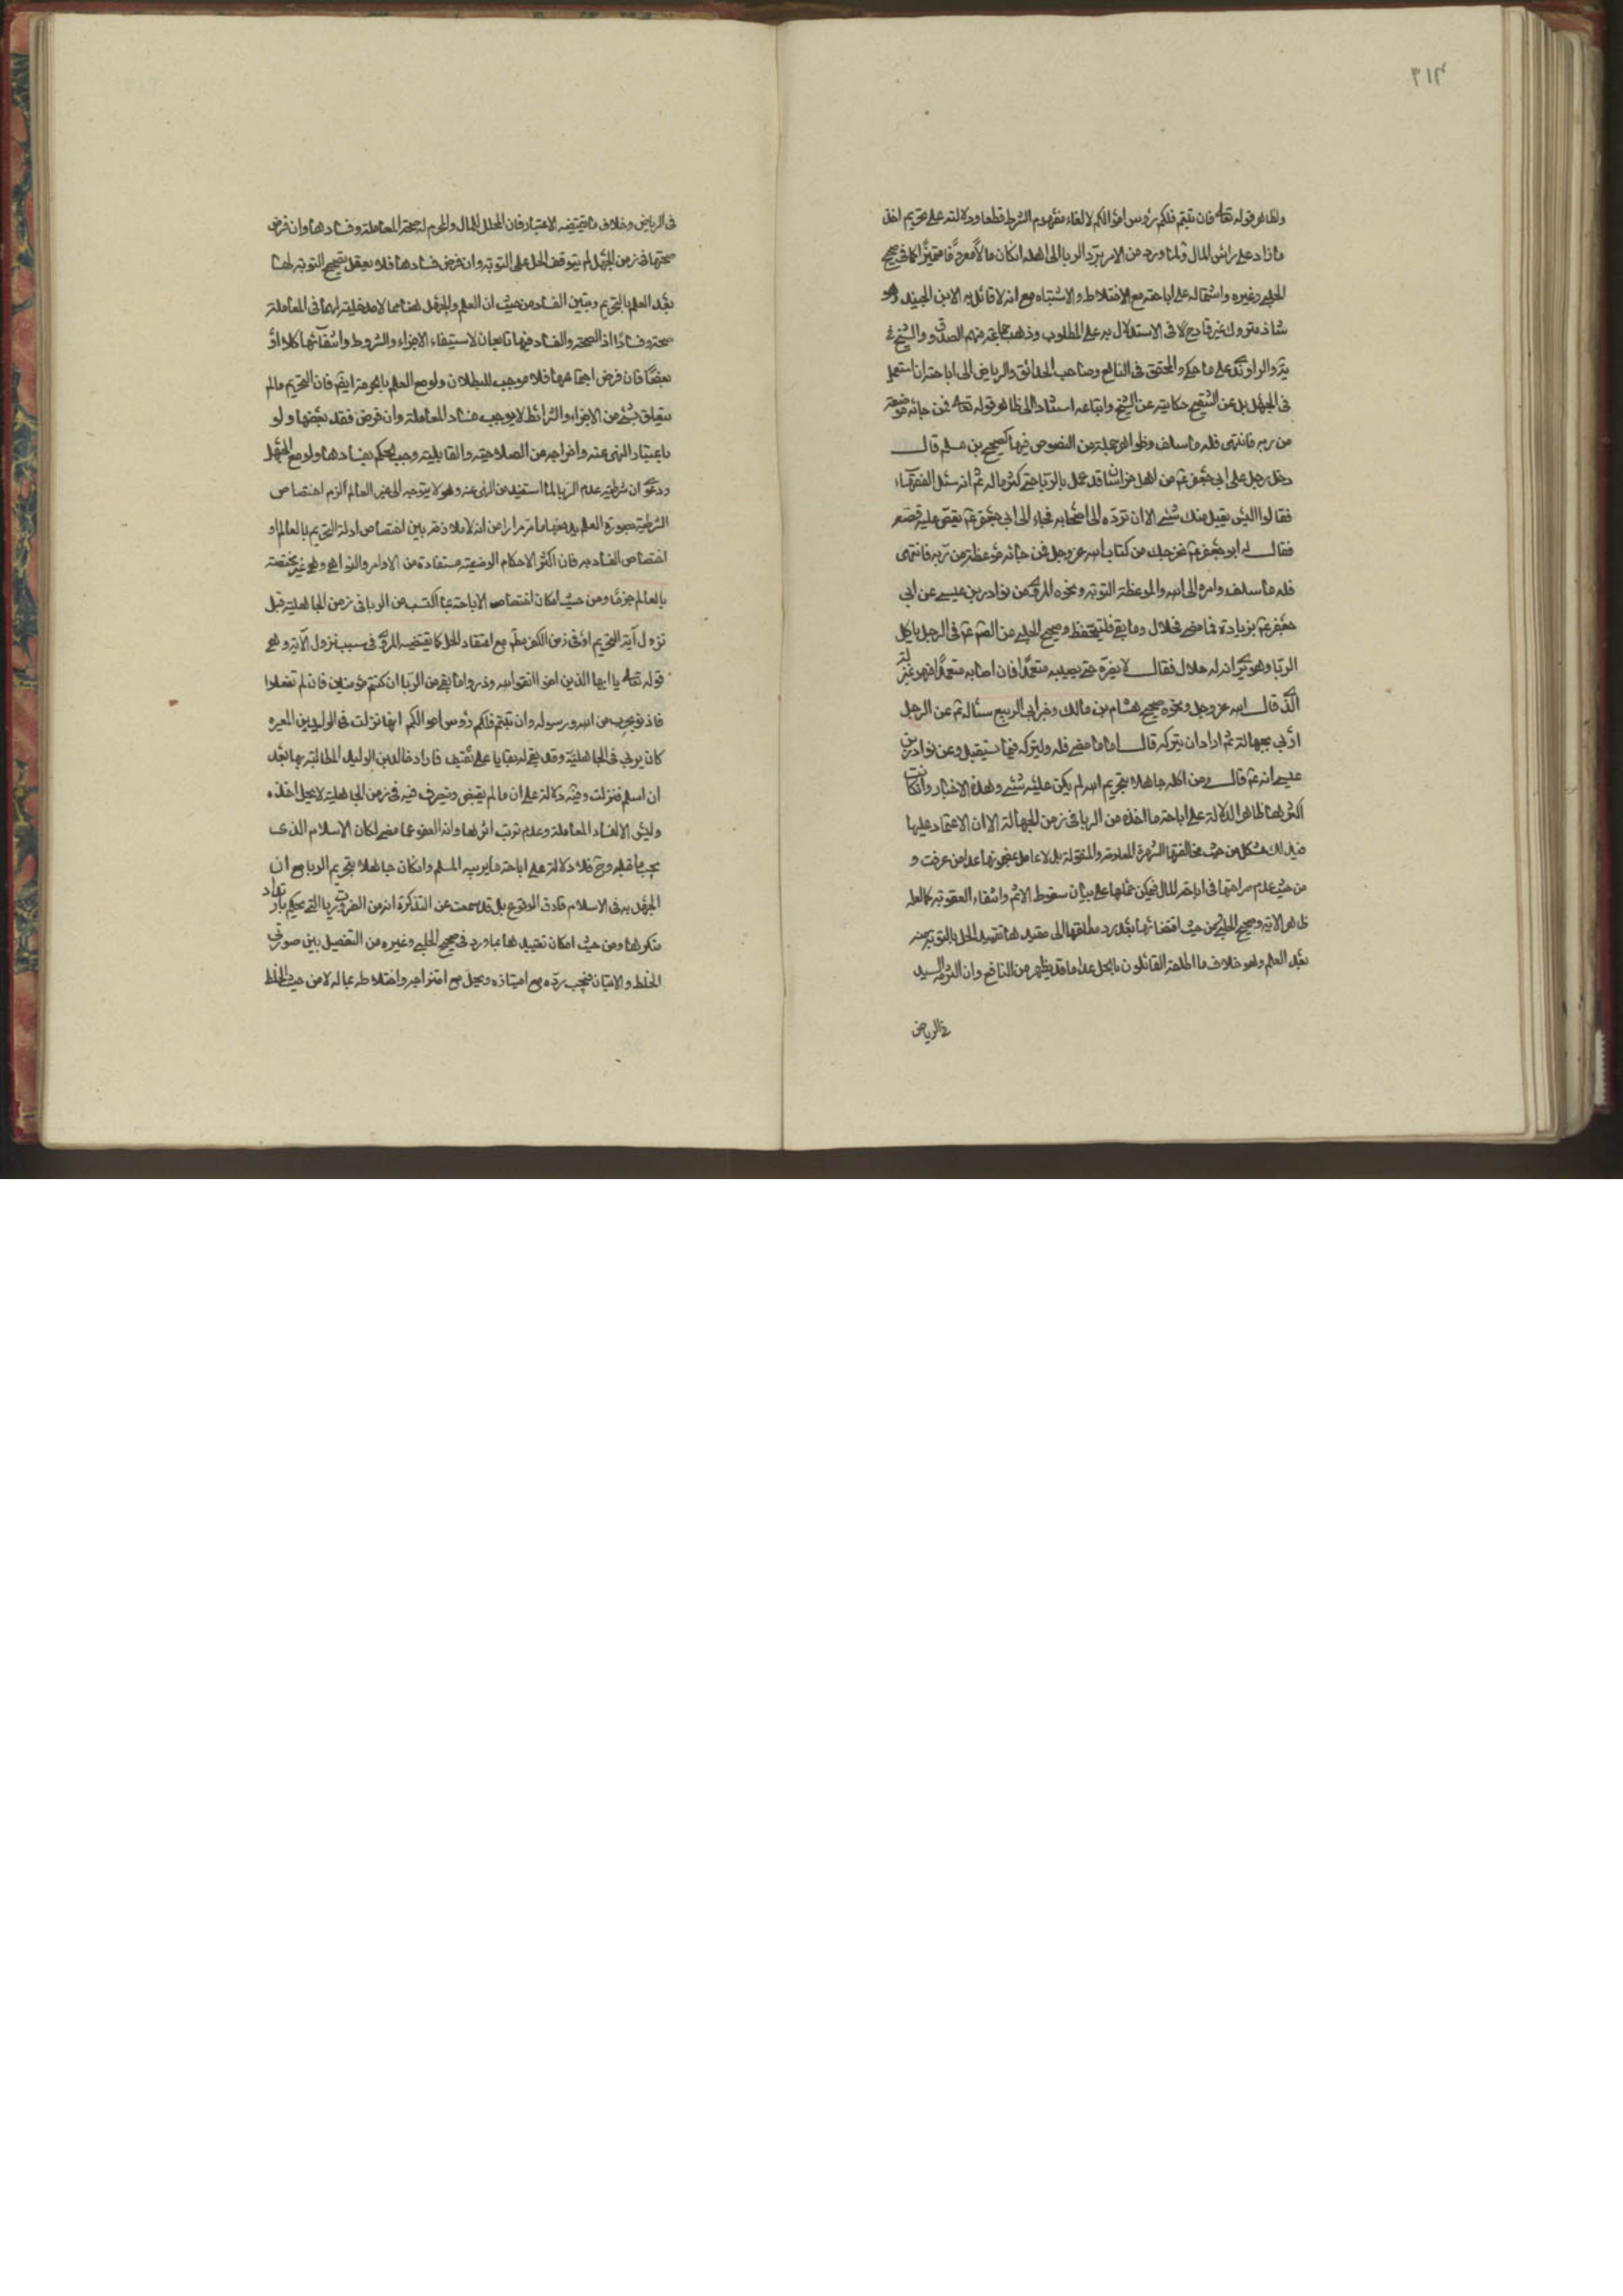 ٣١٣
ولظاهر قوله تعالى فان تبتم فلكم رؤس اموالكم لالغاء مفهوم الشرط قطعا ودلالته على تحريم اخذ
ما زاد على راس المال ولما ورد من الامر برد الربا الى اهله ان كان مالا معروفا متميزا كما في صحيح
الحلبي وغيره واشتماله على اباحته مع الاختلاط والاشتباه مع انه لا قائل به الا ابن الجنيد وهو
شاذ متروك غير قادح في الاستدلال به على المطلوب وذهب جماعة منهم الصدوق والشيخ في
يه والراوندي على ما حكي والمحقق في النافع وصاحب الحدائق والرياض الى اباحة ان استعمل
في الجهل بل عن التنقيح حكايته عن الشيخ واتباعه استنادا الى ظاهر قوله تعالى فمن جائه موعظة
من ربه فانتهى فله ما سلف وظواهر جملة من النصوص فيها كصحيح بن مسلم قال
دخل رجل على ابي جعفر ع من اهل خراسان قد عمل بالربا حتى كثر ماله ثم انه سئل الفقهاء
فقالوا ليس يقبل منك شئ الا ان ترده الى اصحابه فجاء الى ابي جعفر ع فقص عليه قصته
فقال له ابو جعفر ع مخرجك من كتاب الله عز وجل فمن جائه موعظة من ربه فانتهى
فله ما سلف وامره الى الله والموعظة التوبة ونحوه المروي من نوادر بن عيسى عن ابي
جعفر ع بزيادة فما مضى فحلال وما بقي فليتحفظ وصحيح الحلبي عن الص ع في الرجل ياكل
الربا وهو يرى انه له حلال فقال لا يضره حتى يصيبه متعمدا فان اصابه متعمدا فهو بمنزلة
الذي قال الله عز وجل ونحوه صحيح هشام بن مالك وخبر ابي الربيع سئاله ع عن الرجل
اربى بجهالة ثم اراد ان يتركه قال اما ما مضى فله وليتركه فيما يستقبل وعن نوادر بن
عيسى انه ع قال ومن اكله جاهلا بتحريم الله لم يكن عليه شئ وهذه الاخبار وان كانت
اكثرها ظاهر الدلالة على اباحة ما اخذه من الربا في زمن الجهالة الا ان الاعتماد عليها
في ذلك مشكل من حيث مخالفتها الشهرة المعلومة والمنقولة بل لا عامل بمضمونها عدا من عرفت و
من حيث عدم صراحتها في اباحة المال فيمكن حملها على بيان سقوط الاثم وانتفاء العقوبة كما لعله
ظاهر الاية وصحيح الحلبي ومن حيث اقتضائها بعد رد مطلقها الى مقيدها تقييد الحل بالتوبة منه
بعد العلم وهو خلاف ما اطلقه القائلون بالحل عدا ما قد يظهر من النافع وان التزمه السيد
في الرياض
في الرياض وخلاف ما يقتضيه الاعتبار فان المحلل للمال والمحرم له صحة المعاملة وفسادها وان فرض
صحتها في زمن الجهل لم يتوقف الحل على التوبة وان فرض فسادها فلا يعقل تصحيح التوبة لها
بعد العلم بالتحريم وتبين الفساد من حيث ان العلم والجهل هنا مما لا مدخلية لهما في المعاملة
صحة وفسادا اذ الصحة والفساد فيها تابعان لاستيفاء الاجزاء والشروط وانتفائها كلا او
بعضا فان فرض اجتماعها فلا موجب للبطلان ولو مع العلم بالحرمة ايضا فان التحريم ما لم
يتعلق بشئ من الاجزاء والشرائط لا يوجب فساد المعاملة وان فرض فقد بعضها ولو
باعتبار النهي عنه واخراجه من الصلاحية والقابلية وجب الحكم بفسادها ولو مع الجهل
ودعوى ان شرطية عدم الربا لما استفيد من النهي عنه وهو لا يتوجه الى غير العالم الزم اختصاص
الشرطية بصورة العلم يدفعها ما مر مرارا من انه لا ملازمة بين اختصاص ادلة التحريم بالعالم او
اختصاص الفساد به فان اكثر الاحكام الوضعية مستفادة من الاوامر والنواهي وهي غير مختصة
بالعالم جزما ومن حيث امكان اختصاص الاباحة بما اكتسب من الربا في زمن الجاهلية قبل
نزول آية التحريم او في زمن الكفر مطلقا مع اعتقاد الحل كما يقتضيه المروي في سبب نزول الآية وهي
قوله تعالى يا ايها الذين امنوا اتقوا الله وذروا ما بقي من الربا ان كنتم مؤمنين فان لم تفعلوا
فاذنوا بحرب من الله ورسوله وان تبتم فلكم رؤس اموالكم انها نزلت في الوليد بن المغيرة
كان يربي في الجاهلية وقد بقي له بقايا على ثقيف فاراد خالد بن الوليد المطالبة بها بعد
ان اسلم فنزلت وفيه دلالة على ان ما لم يقبض ويتصرف فيه في زمن الجاهلية لا يحل اخذه
وليس الا لفساد المعاملة وعدم ترتب اثر لها وانه العفو عما مضى لكان الاسلام الذي
يجب ما قبله وح فلا دلالة على اباحة ما يربيه المسلم وان كان جاهلا بتحريم الربا مع ان
الجهل به في الاسلام نادر الوقوع بل قد سمعت عن التذكرة انه من الضروريات التي يحكم بارتداد
منكرها ومن حيث امكان تقييدها بما ورد في صحيح الحلبي وغيره من التفصيل بين صورتي
الخلط والامتياز فيجب رده مع امتيازه ويحل مع امتزاجه واختلاطه بماله لا من حيث الخلط